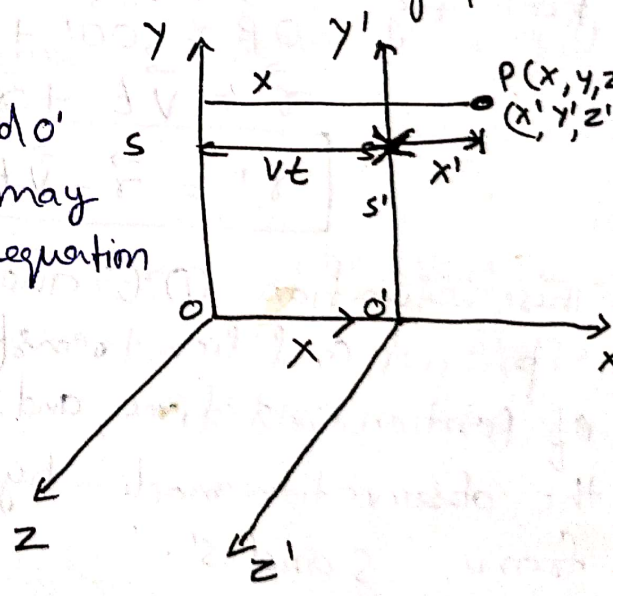 Y Y'
X P(X, Y, Z
(X', Y', Z'
d O' S
Vt X'
may S'
equation
O O'
X X
Z
Z'